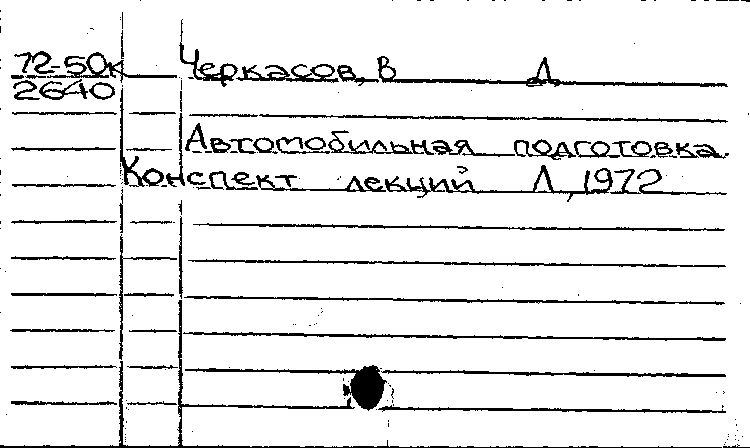 72-50к Черкасов, В Д
2640
Автомобильная подготовка.
Конспект лекций Л, 1972